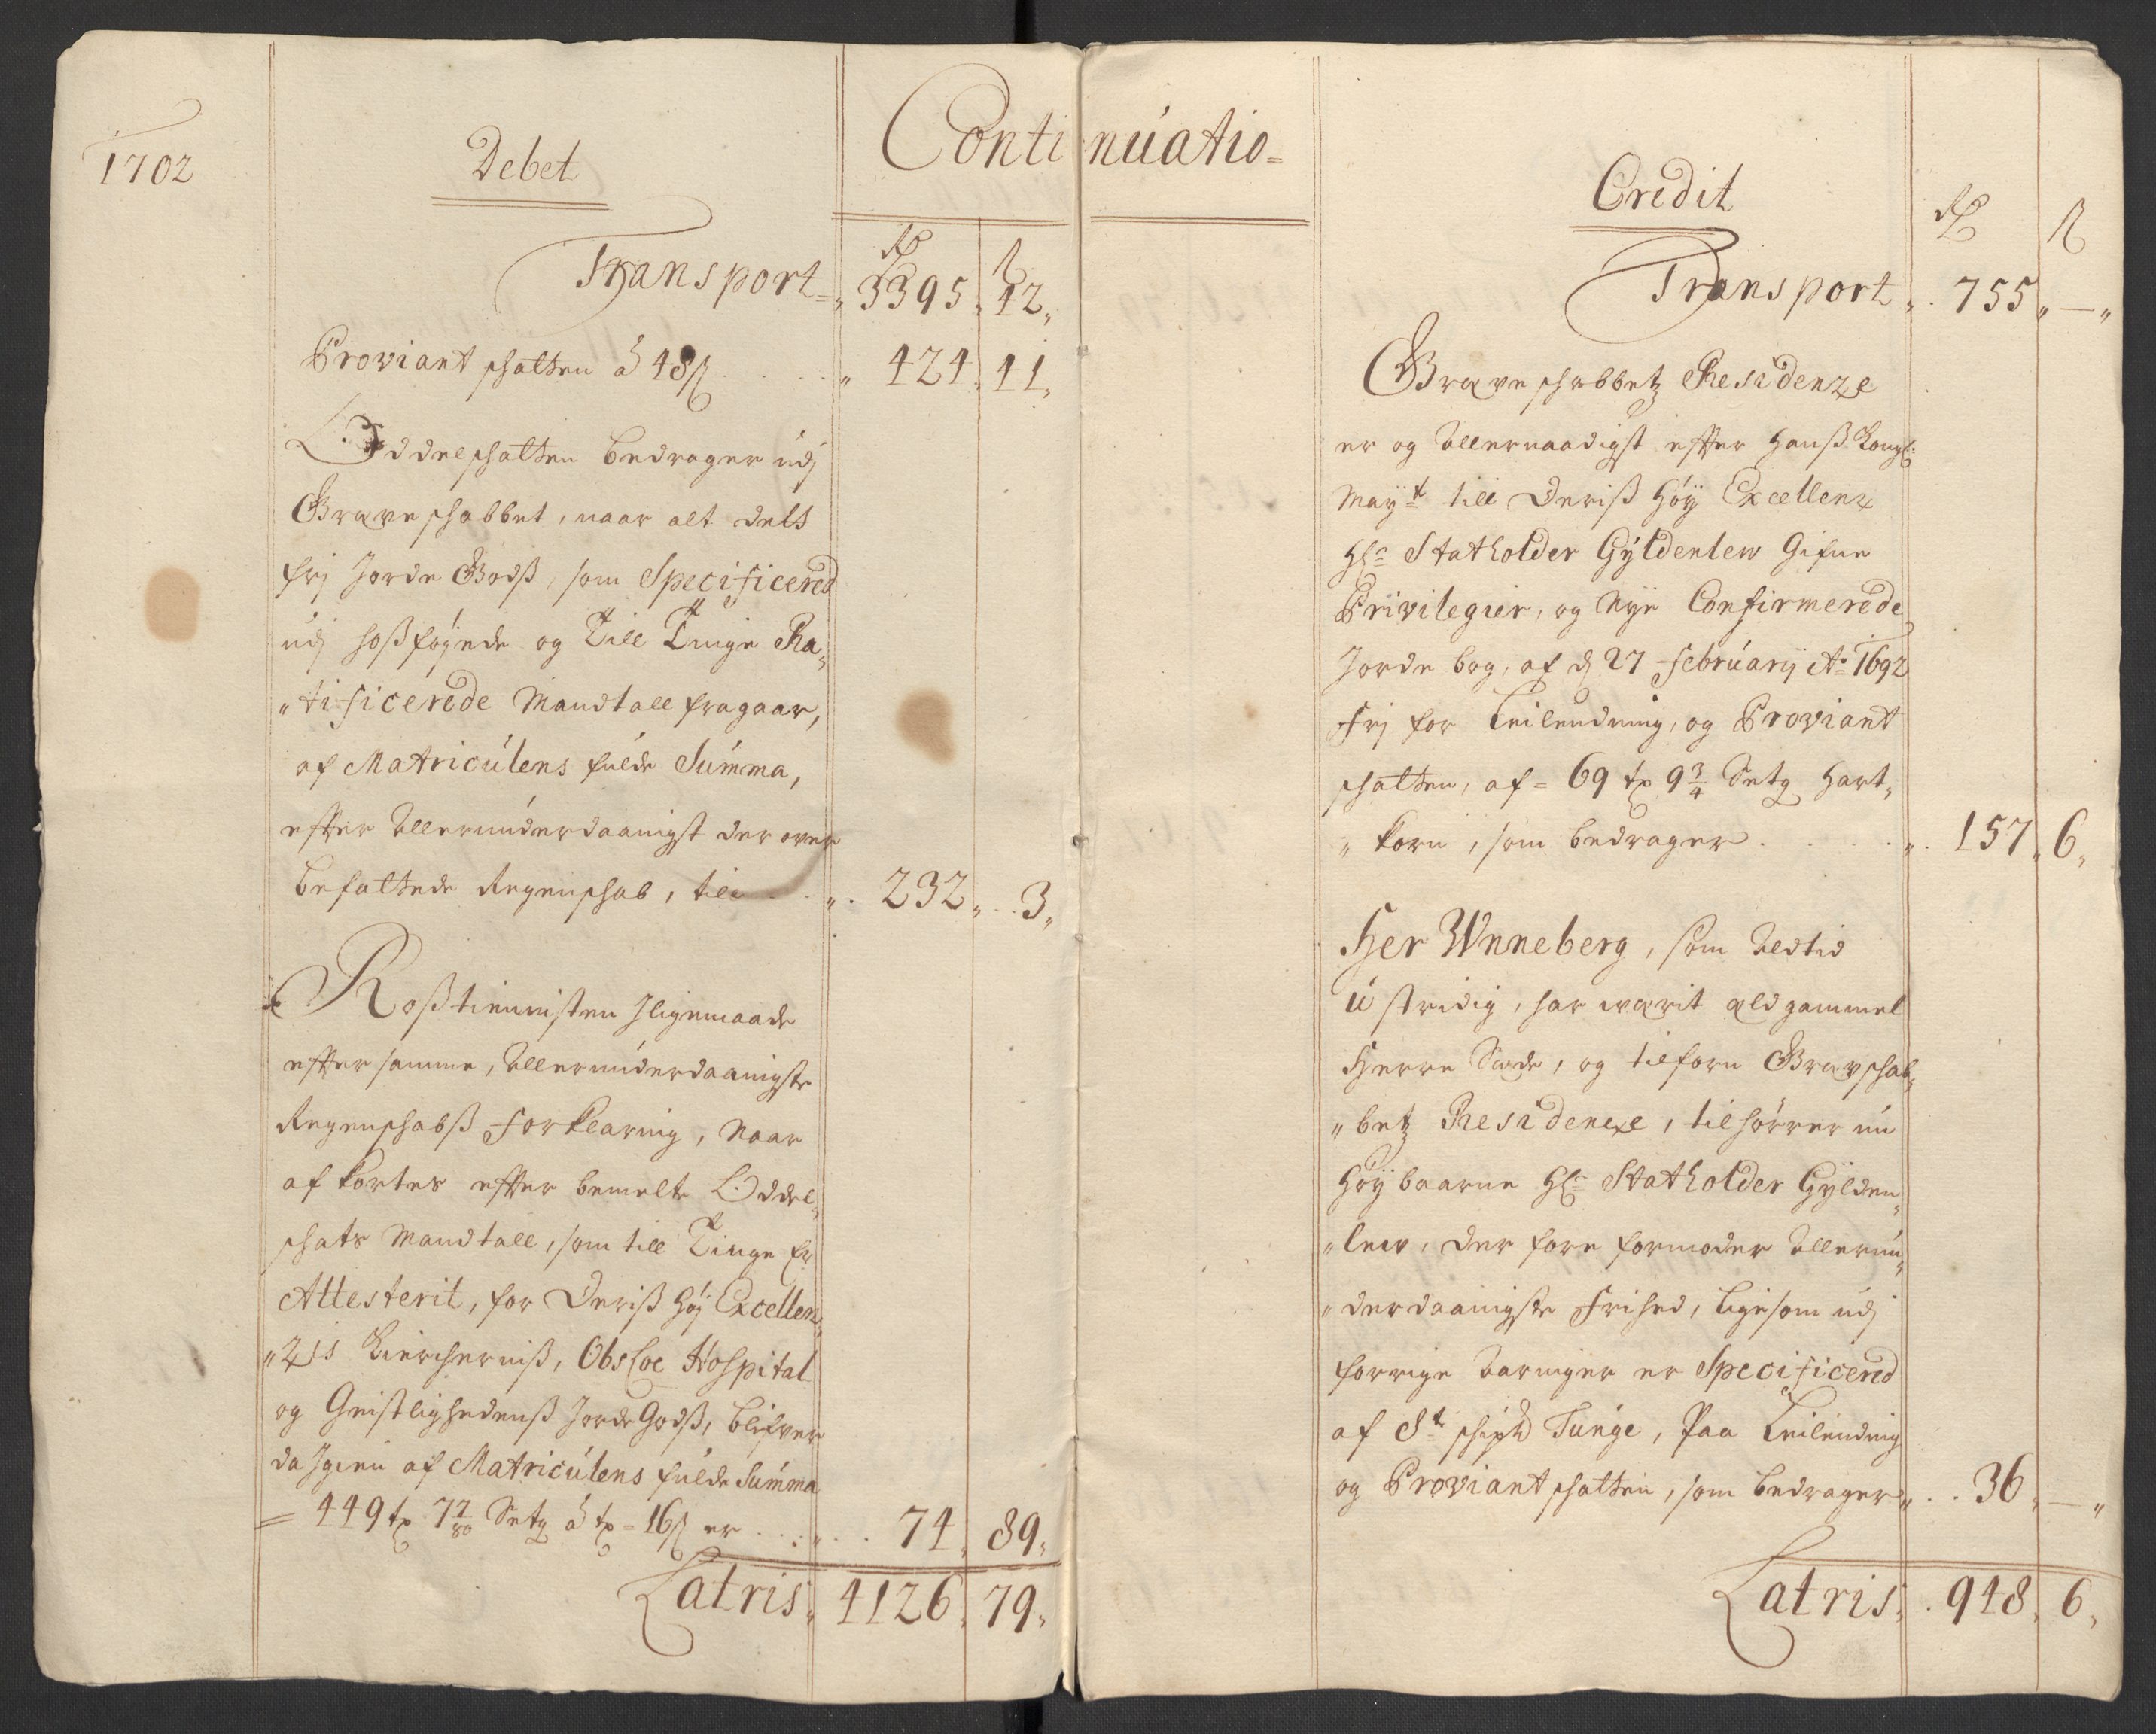 1702
Continuatio=
Debet
Rd ß
Transport= „ 3395 „ 42 „
Proviant skatten á 48 ß . . . . „ 424 „ 41 „
Oddelskatten bedrager udj
Grave skabbet, naar alt dets
frj Jorde Godß, som Specificered
udj hoßføyede og Till Tinge Ra„
„tificerede Mandtall fragaar,
af Matriculens fulde Summa,
effter Allerunderdaanigst der over
befattede Regenskab, till . . „ . 232 „ . . 3 „
Roßtienisten Jligemaade
effter samme, Allerunderdaanigste
Regenskabß forklaring, Naar
afkortes effter bemelte Oddel„
skats Mandtall, som till Tinge er
Attesterit, for Deriß Høy Excellen„
„zis Kircherniß, Obsloe Hospital
og Geistlighedenß Jorde Godß, blifver
da Jgien af Matriculens fulde Summa
= 449 tr 7 4/80 Setg á tr = 16 ß er . . . „ . . 74 „ 89 „
Latris „ 4126 „ 79 „
Credit
Rd ß
Transport „ . 755 „ — „
Grave skabbetz Residenze
er og Allernaadigst effter Hanß Kongl:
Mayt: till Deriß Høy Excellenz
Hr: Statholder Gyldenlew Gifne
Privilegier, og Nye Confirmerede
Jorde bog, af d 27 February Ao 1692
Frj for Leilending, og Proviant
skatten, af = 69 tr 9 3/4 Setg Hart„
„korn, som bedrager . . . . „ . 157 „ 6 „
Her Wnneberg, som Altid
ustridig, har wærit ald gammel
Herre Sæde, og tilforn Gravskab„
„betz Residenze, tilhører nu
Høybaarne Hr: Statholder Gylden„
„lew, der fore formoder Allerun„
„derdaanigste Frihed, ligesom udj
forrige Aaringer er Specificered
af 8t skipd Tunge, Paa Leilending
og Proviant skatten, som bedrager „ . . 36 „ — „
Latris „ . 948 „ 6 „